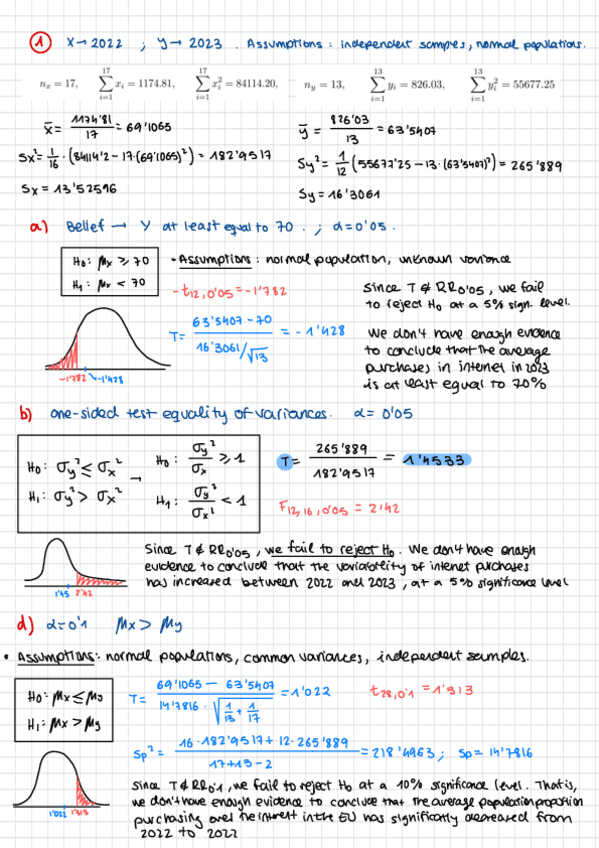 ① X→2022 ; Y→2023 . Assumptions: independent sampres, normal populations.
n_x = 17, ∑_{i=1}^{17} x_i = 1174.81, ∑_{i=1}^{17} x_i^2 = 84114.20, n_y = 13, ∑_{i=1}^{13} y_i = 826.03, ∑_{i=1}^{13} y_i^2 = 55677.25
x̄ = 1174'81 / 17 = 69'1065
ȳ = 826'03 / 13 = 63'5407
Sx² = 1/16 · (84114'2 - 17·(69'1065)²) = 182'9517
Sy² = 1/12 (55677'25 - 13·(63'5407)²) = 265'889
Sx = 13'52596
Sy = 16'3061
a) Belief → Y at least equal to 70 . ; α=0'05 .
H0: μx ≥ 70
H1: μx < 70
- Assumptions: normal population, unknown variance
-t12,0'05 = -1'782
T = 63'5407-70 / 16'3061/√13 = -1'428
-1'782 -1'428
Since T ∉ RR0'05, we fail
to reject H0 at a 5% sign. level.
We don't have enough evidence
to conclude that the average
purchases in internet in 2023
is at least equal to 70%
b) one-sided test equality of variances. α= 0'05
H0: σy² ≤ σx² → H0: σy²/σx ≥ 1
H1: σy² > σx² H1: σy²/σx² < 1
T = 265'889 / 182'9517 = 1'4533
F12,16,0'05 = 2'42
1'45 2'42
Since T ∉ RR0'05, we fail to reject H0. We don't have enough
evidence to conclude that the variability of internet purchases
has increased between 2022 and 2023, at a 5% significance level
d) α=0'1 μx > μy
• Assumptions: normal populations, common variances, independent samples.
H0: μx ≤ μy
H1: μx > μy
T = 69'1065 - 63'5407 / 14'7816 · √(1/13 + 1/17) = 1'022
t28,0'1 = 1'313
Sp² = 16·182'9517 + 12·265'889 / 17+13-2 = 218'4963; Sp= 14'7816
1'022 1'313
Since T ∉ RR0'1, we fail to reject H0 at a 10% significance level. That is,
we don't have enough evidence to conclude that the average population proportion
purchasing over the internet in the EU has significantly decreased from
2022 to 2022